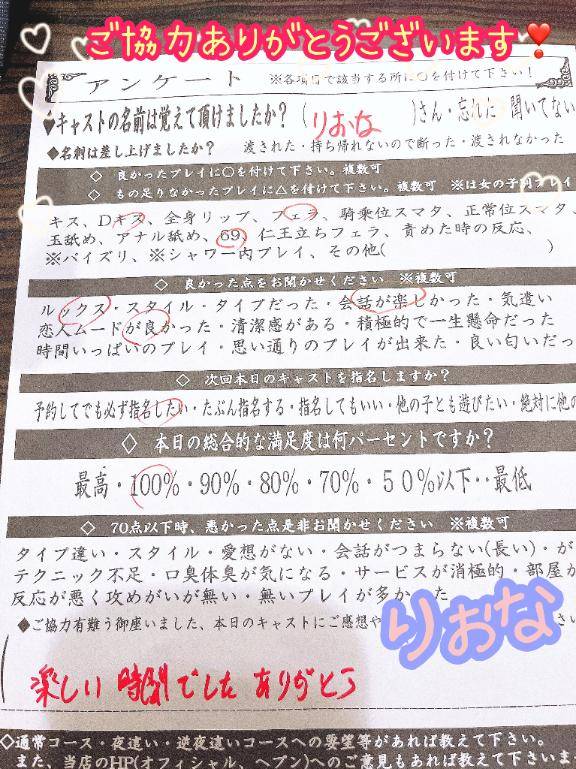 ご協力ありがとうございます❣
アンケート ※各項目で該当する所に○を付けて下さい！
◆キャストの名前は覚えて頂けましたか？（りおな）さん・忘れた 聞いてない
◆名刺は差し上げましたか？ 渡された・持ち帰れないので断った・渡されなかった
◇ 良かったプレイに○を付けて下さい。複数可
◇ もの足りなかったプレイに△を付けて下さい。複数可 ※は女の子別
キス、Dキス、全身リップ、フェラ、騎乗位スマタ、正常位スマタ、
玉舐め、アナル舐め、69、仁王立ちフェラ、責めた時の反応、
※パイズリ、※シャワー内プレイ、その他( )
◇ 良かった点をお聞かせください ※複数可
ルックス・スタイル・タイプだった・会話が楽しかった・気遣い
恋人ムードが良かった・清潔感がある・積極的で一生懸命だった
時間いっぱいのプレイ・思い通りのプレイが出来た・良い匂いだっ
◇ 次回本日のキャストを指名しますか？
予約してでも必ず指名したい・たぶん指名する・指名してもいい・他の子とも遊びたい・絶対に他の
◇ 本日の総合的な満足度は何パーセントですか？
最高・100%・90%・80%・70%・50%以下・・最低
◇ 70点以下時、悪かった点是非お聞かせください ※複数可
タイプ違い・スタイル・愛想がない・会話がつまらない(長い)・が
テクニック不足・口臭体臭が気になる・サービスが消極的・部屋が
反応が悪く攻めがいが無い・無いプレイが多かった
◆ご協力有難う御座いました、本日のキャストにご感想や さい。
りおな
楽しい 時間でした ありがとう
◇通常コース・夜這い・逆夜這いコースへの要望等があれば教えて下さい。
また、当店のHP(オフィシャル、ヘブン)へのご意見もあれば教えて下さい